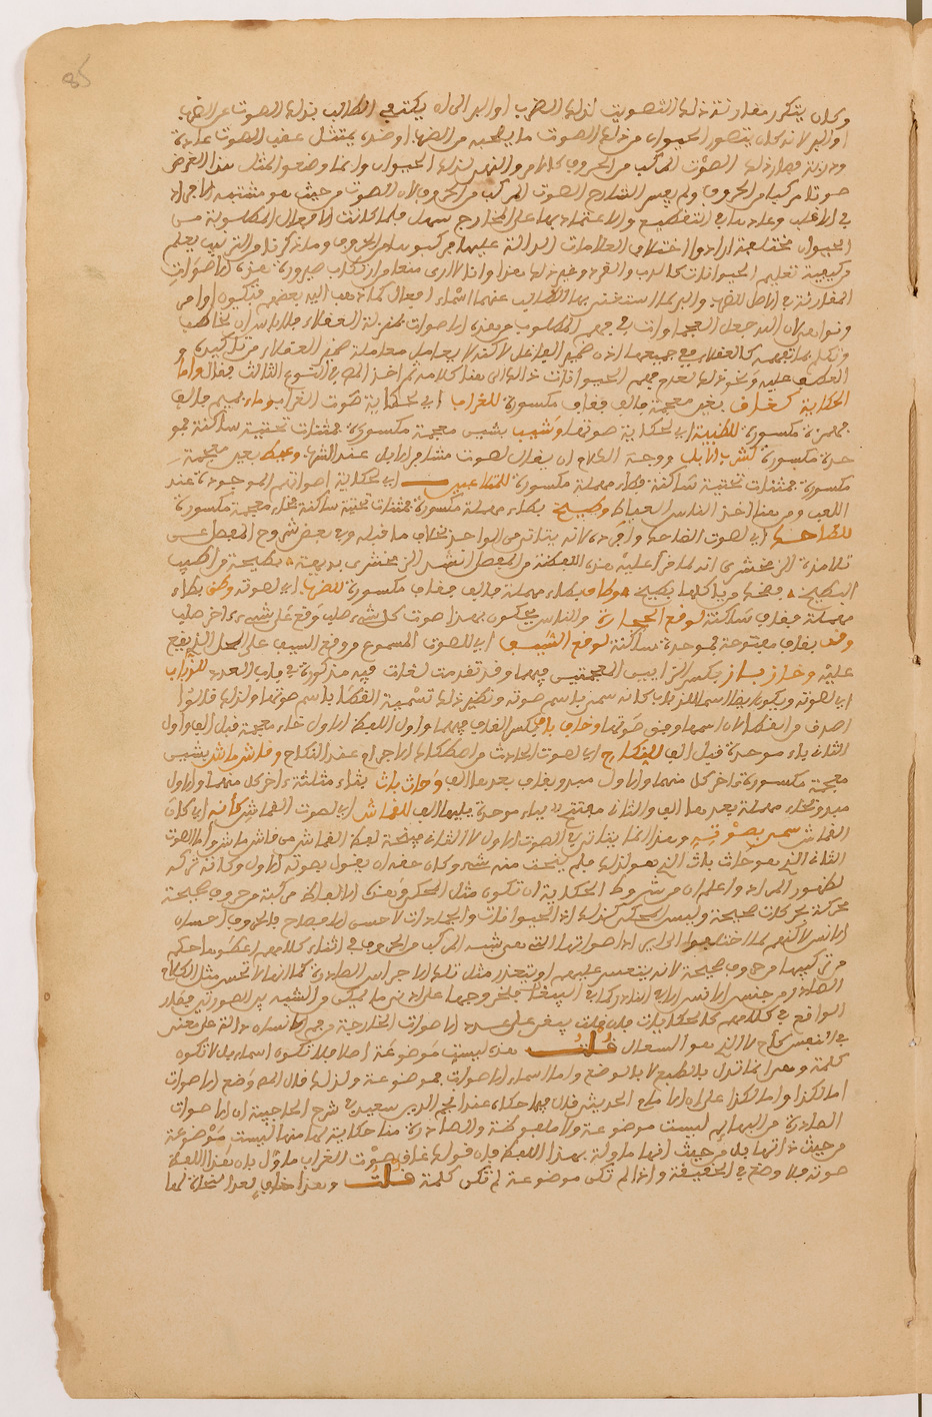 85
وكان يتكرر مقارنة ذلك التصويت لذلك الضرب او البر الى ان يكتفي الطالب بذلك الصوت عن الضرب
او البر لانه كان يتصور الحيوان من ذلك الصوت ما يصحبه من الضرب او ضده يمتثل عقب الصوت عادة
ودربة فصار ذلك الصوت المركب من الحروف كالامر والنهي لذلك الحيوان وانما وضعوا لمثل هذا الغرض
صوتا مركبا من الحروف ولم يعين الساذج الصوت المركب من الحروف لان الصوت من حيث هو مشتبه الافراد
في الاغلب وعادة في التقطيع والاعتماد بها على المخارج سهل فلما كانت الافعال المطلوبة من
الحيوان مختلفة ارادوا اختلاف العلامات الدالة عليها فركبوها من الحروف وما ذكرنا من الترتيب يعلم
من كيفية تعليم الحيوانات كالدب والقرد وغير ذلك هذا وانا لا ارى منعا من ارتكاب صيرورة هذه الاصوات
المقارنة في الاصل للضرب والبر لما استغنى بها الطالب عنهما اسماء افعال كما ذهب اليه بعضهم فتكون اوامر
ونواهي لان الله جعل العجماوات في فهم المطلوب من هذه الاصوات بمنزلة العقلاء فلا باس ان تخاطب
وتكلم بما تفهمه كالعقلاء في جميعها اذن ضمير الفاعل لكنه لا يعامل معاملة ضمير العقلاء من تاكيده و
العطف عليه ونحو ذلك لعدم فهم الحيوانات ذلك الى هنا كلامه ثم اخذ المص في النوع الثالث فقال واما
الحكاية كغاق بغين معجمة فالف فقاف مكسورة للغراب اي لحكاية صوت الغراب وماء بميم فالف
فهمزة مكسورة للظبية اي لحكاية صوتها وشيب بشين معجمة مكسورة فمثناة تحتية ساكنة فمو
حدة مكسورة لشرب الابل ووجه الكلام ان يقال لصوت مشافر الابل عند الشرب وعيط بعين مهملة
مكسورة فمثناة تحتية ساكنة فطاء مهملة مكسورة للمتلاعبين اي لحكاية اصواتهم الموجودة عند
اللعب ومن هنا اخذ الناس العياط وطيخ بطاء مهملة مكسورة فمثناة تحتية ساكنة فخاء معجمة مكسورة
للضاحك اي لصوت الضاحك وافرده لانه يتاتى من الواحد بخلاف ما قبله وفي بعض شروح المفصل عن
تلامذة الزمخشري انه لما قرا عليه هذه اللفظة من المفصل انشد الزمخشري بديهة بطيحة من اطيب
البطيخ فضحك فيا كلها بطيخ وطاق بطاء مهملة فالف فقاف مكسورة للضرب اي لصوته وطق بطاء
مهملة فقاف ساكنة لوقع الحجارة والناس يحكون بهذا صوت كل شيء صلب وقع على شيء اخر صلب
وقب بقاف مفتوحة فموحدة ساكنة لوقع السيف اي للصوت المسموع من وقع السيف على المحل الذي يقع
عليه وخاز باز بكسر الزايين المعجمتين فيهما وقد تقدمت لغات فيه مذكورة في باب العدد للذباب
اي لصوته ويكون ايضا اسما للذباب كانه سمي باسم صوته ونظير ذلك تسمية القطا باسم صوتها ولذلك قالوا
اصدق من القطا لان اسمها وفق صوتها وخاق باق بكسر القاف فيهما واول اللفظ الاول خاء معجمة قبل الف واول
الثاني باء موحدة قبل الف للنكاح اي لصوت الحادث من اصطكاك الاجرام عند النكاح وقاش ماش بشين
معجمة مكسورة اخر كل منهما والاول مبدو بقاف بعدها الف وحاث باث بثاء مثلثة اخر كل منهما والاول
مبدو بحاء مهملة بعدها الف والثاني مفتتح بباء موحدة يليها الف للقماش اي لصوت القماش كانه اي كان
القماش سمي بصوته وهذا انما يتاتى في الصوت الاول لا الثاني فيبحث لفظ القماش من قاش ماش واما الصوت
الثاني الذي هو حاث باث الذي هو لذلك فلم ينحت منه شيء وكان حقه ان يقول بصوته الاول وكانه تركه
لظهور المراد واعلم ان من شروط الحكاية ان تكون مثل المحكي وهذه الالفاظ مركبة من حروف صحيحة
محركة بحركات صحيحة وليس المحكي كذلك اذ الحيوانات والجمادات لا تحسن الافصاح بالحروف احسان
الانس لكنهم لما احتاجوا الى ايراد اصواتها التي هي شبه المركب من الحروف في اثناء كلامهم اعطوها حكم
من تركيبها من حروف صحيحة لانه يتعسر عليهم او يتعذر مثل تلك الاجراس الصادرة كما انها لا تحسن مثل الكلام
الصادر من جنس الانس الا في النادر كما في الببغا فاخرجوها على ادنى ما يمكن من الشبه بين الصوتين فصار
الواقع في كلامهم كالحكايات فان قلت بقي على عده الاصوات الخارجة من فم الانسان دالة على معنى
في النفس كاح لا الذي هو السعال قلت هذه ليست موضوعة اصلا فلا تكون اسماء بل لا تكون
كلمة وهي انما تدل بالطبع لا بالوضع واما اسماء الاصوات فموضوعة ولذلك قال المص وضع الاصوات
اما لكذا واما لكذا على ان الامام الحديثي قال فيما حكاه عند نجم الدين سعيد في شرح الحاجبية ان الاصوات
الصادرة من البهايم ليست موضوعة ولا ملفوظة والصادرة منا حكاية لها منها ليست موضوعة
من حيث ذاتها بل من حيث انها ماولة بهذا اللفظ فان قولك غاق صوت الغراب ماول بان هذا اللفظ
صوته فلا وضع في الحقيقة واذا لم تكن موضوعة لم تكن كلمة قلت وهذا خلاف لهذا